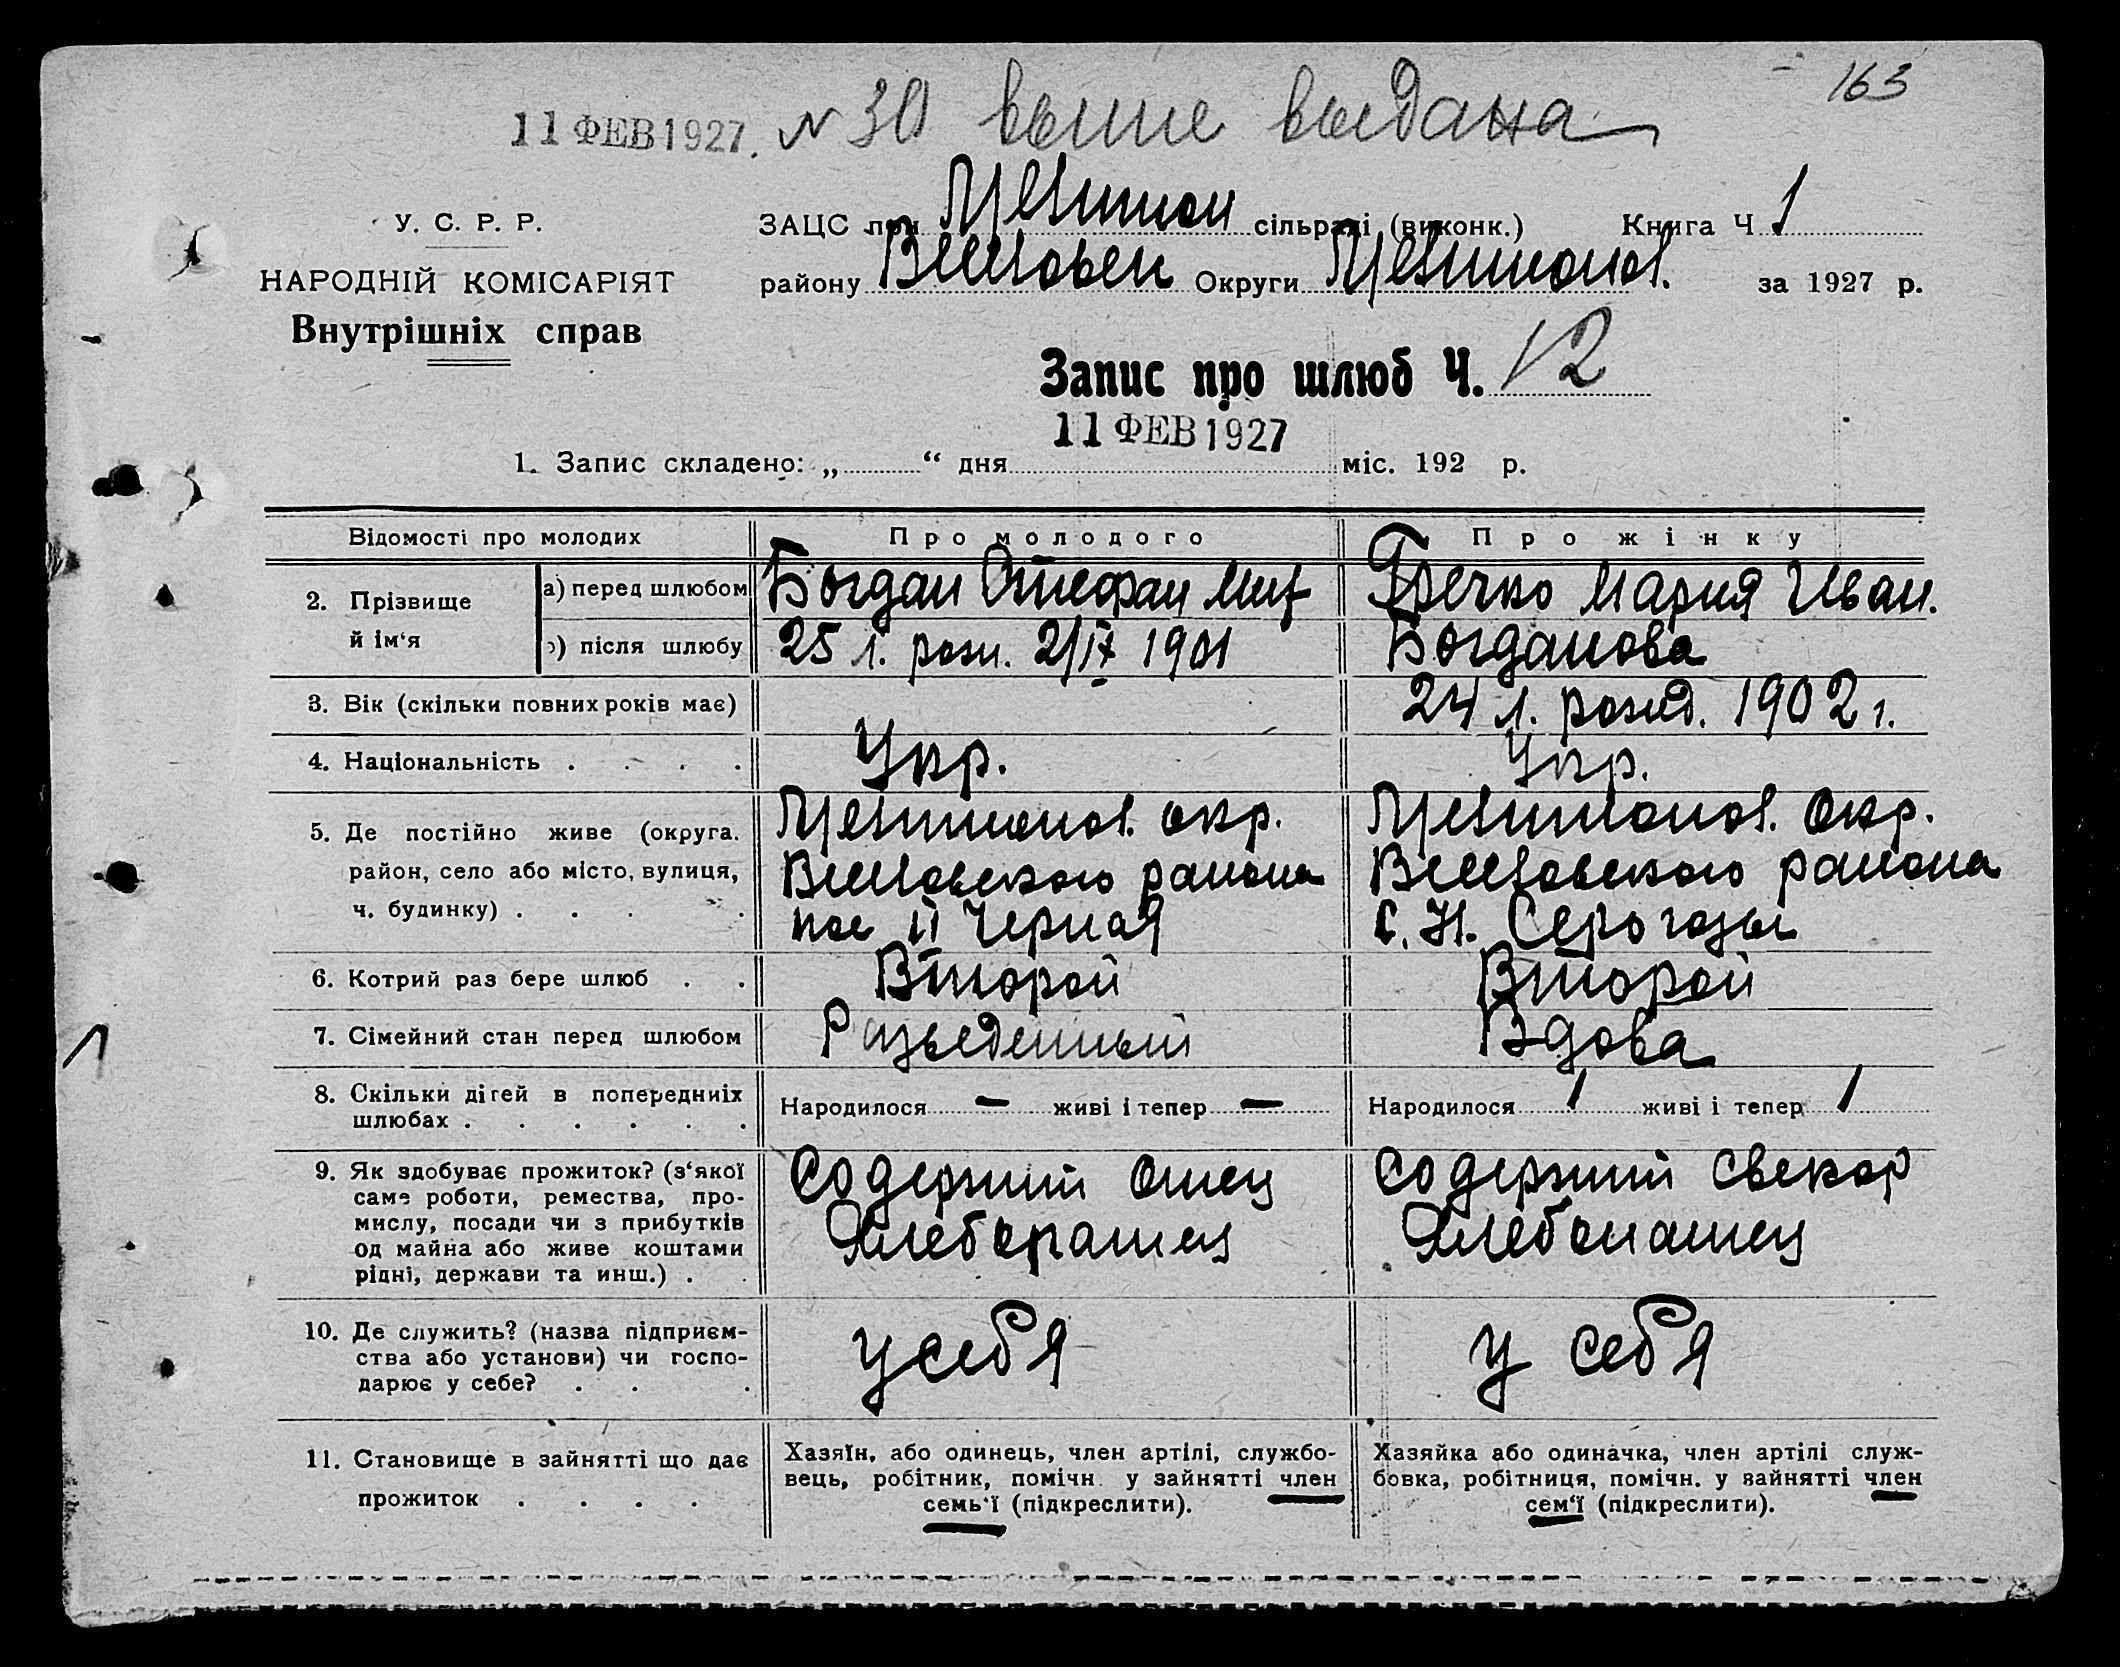 163
11 ФЕВ 1927. N 30 выше выдана
У. С. Р. Р.
НАРОДНІЙ КОМІСАРІЯТ
Внутрішніх справ
ЗАЦС при сільраді (виконк.) Книга Ч 1
району Округи за 1927 р.
Запис про шлюб Ч. 12
11 ФЕВ 1927
1. Запис складено: „ “ дня міс. 192 р.
Відомості про молодих Про молодого Про жінку
2. Прізвище й ім‘я
а) перед шлюбом Богдан Стефан Мит Гречко Мария Иван.
б) після шлюбу 25 л. рожд. 2/IX 1901 Богданова
3. Вік (скільки повних років має) 24 л. рожд. 1902 г.
4. Національність . . . . Укр. Укр.
5. Де постійно живе (округа.
район, село або місто, вулиця,
ч. будинку) . . . .
окр.
района
пос II Черная
Окр.
района
С. Н. Серогозы
6. Котрий раз бере шлюб . . Второй Второй
7. Сімейний стан перед шлюбом Разведенный Вдова
8. Скільки дітей в попередниіх
шлюбах . . . . . .
Народилося — живі і тепер —
Народилося 1 живі і тепер 1
9. Як здобуває прожиток? (з‘якої
саме роботи, ремества, про-
мислу, посади чи з прибутків
од майна або живе коштами
рідні, держави та инш.) . .
Содержит отец
Хлебопашец
Содержит свекор
Хлебопашец
10. Де служить? (назва підприєм-
ства або установи) чи госпо-
дарює у себе? . . .
у себя
у себя
11. Становище в зайнятті що дає
прожиток . . . .
Хазяїн, або одинець, член артілі, службо-
вець, робітник, помічн. у зайнятті член
семь‘ї (підкреслити).
Хазяйка або одиначка, член артілі служ-
бовка, робітниця, помічн. у зайнятті член
сем‘ї (підкреслити).